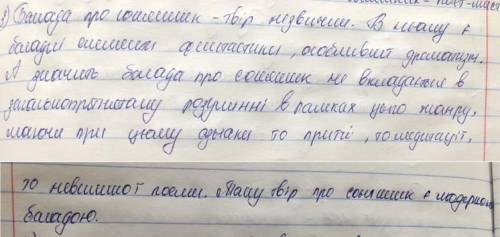 2) Балада про соняшник - твір незвичний. В ньому є
баладні елементи фантастики, особливий драматизм.
А значить балада про соняшник не вкладається в
загальноприйнятому розумінні в рамках цього жанру,
маючи при цьому ознаки то притчі, то медитації,
то невеликої поеми. Тому твір про соняшник є модерною
баладою.